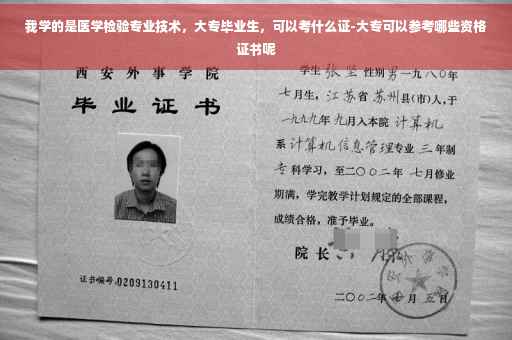 我学的是医学检验专业技术，大专毕业生，可以考什么证-大专可以参考哪些资格
证书呢
西安外事学院
毕业证书
证书编号.0209130411
学生 张坚 性别男一九八〇年
七月生，江苏省苏州县(市)人，于
一九九九年九月入本院 计算机
系计算机信息管理专业 三 年制
专科学习，至二〇〇二年 七月修业
期满，学完教学计划规定的全部课程，
成绩合格，准予毕业。
院长
二〇〇二年 月五日